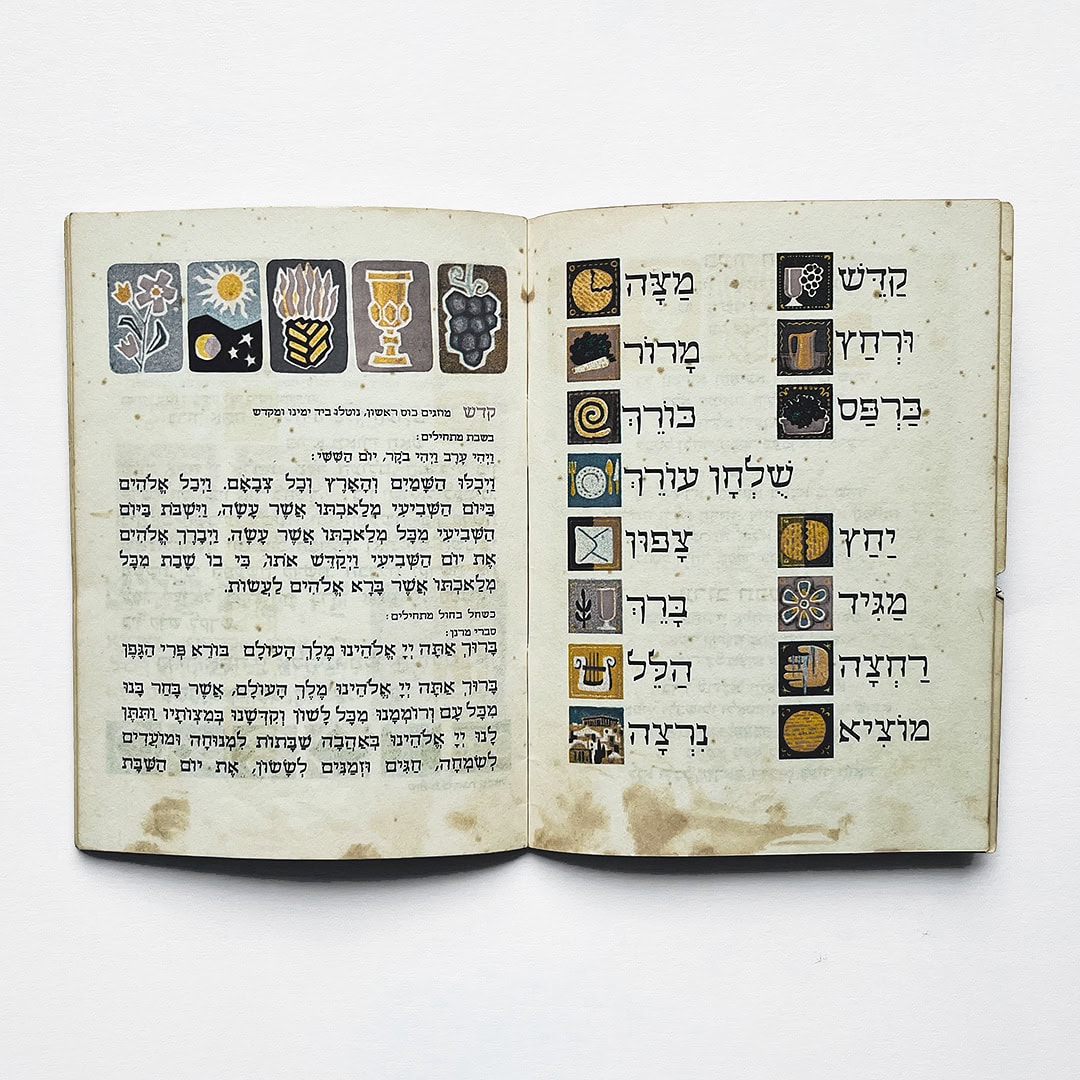 קַדֵּשׁ
וּרְחַץ
כַּרְפַּס
יַחַץ
מַגִּיד
רַחְצָה
מוֹצִיא
מַצָּה
מָרוֹר
כּוֹרֵךְ
שֻׁלְחָן עוֹרֵךְ
צָפוּן
בָּרֵךְ
הַלֵּל
נִרְצָה
קדש מוזגים כוס ראשון, נוטלו ביד ימינו ומקדש
בשבת מתחילים:
וַיְהִי עֶרֶב וַיְהִי בֹקֶר, יוֹם הַשִּׁשִּׁי:
וַיְכֻלּוּ הַשָּׁמַיִם וְהָאָרֶץ וְכָל צְבָאָם. וַיְכַל אֱלֹהִים
בַּיּוֹם הַשְּׁבִיעִי מְלַאכְתּוֹ אֲשֶׁר עָשָׂה, וַיִּשְׁבֹּת בַּיּוֹם
הַשְּׁבִיעִי מִכָּל מְלַאכְתּוֹ אֲשֶׁר עָשָׂה. וַיְבָרֶךְ אֱלֹהִים
אֶת יוֹם הַשְּׁבִיעִי וַיְקַדֵּשׁ אֹתוֹ, כִּי בוֹ שָׁבַת מִכָּל
מְלַאכְתּוֹ אֲשֶׁר בָּרָא אֱלֹהִים לַעֲשׂוֹת.
כשחל בחול מתחילים:
סברי מרנן:
בָּרוּךְ אַתָּה יְיָ אֱלֹהֵינוּ מֶלֶךְ הָעוֹלָם בּוֹרֵא פְּרִי הַגָּפֶן
בָּרוּךְ אַתָּה יְיָ אֱלֹהֵינוּ מֶלֶךְ הָעוֹלָם, אֲשֶׁר בָּחַר בָּנוּ
מִכָּל עָם וְרוֹמְמָנוּ מִכָּל לָשׁוֹן וְקִדְּשָׁנוּ בְּמִצְוֹתָיו וַתִּתֶּן
לָנוּ יְיָ אֱלֹהֵינוּ בְּאַהֲבָה שַׁבָּתוֹת לִמְנוּחָה וּמוֹעֲדִים
לְשִׂמְחָה, חַגִּים וּזְמַנִּים לְשָׂשׂוֹן, אֶת יוֹם הַשַּׁבָּת